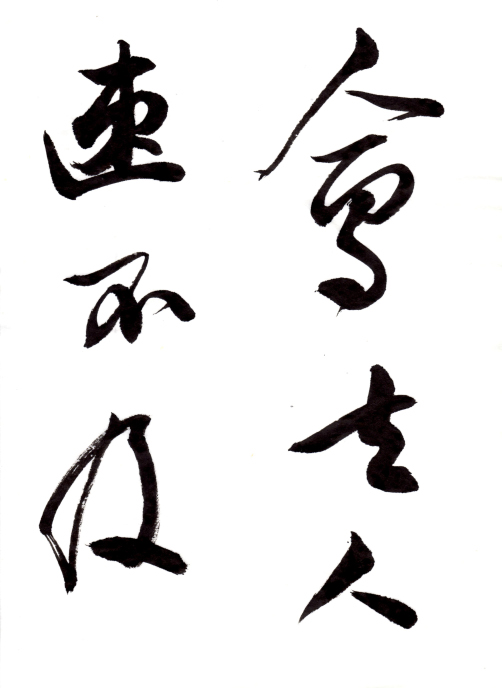 會去人
速不及